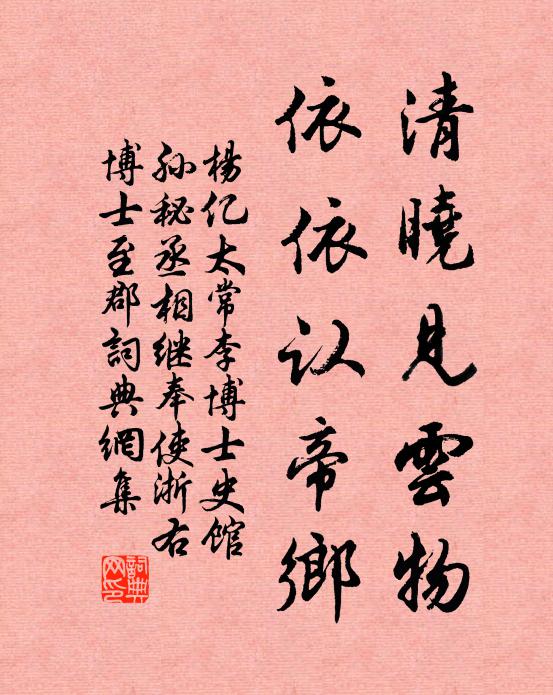 清曉見雲物
依依认帝鄉
楊亿太常李博士史馆
孙秘丞相继奉使浙右
博士至郡詞典網集
詞典
网印